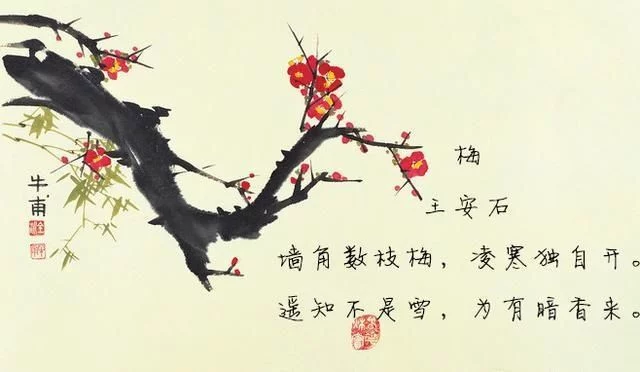 梅
王安石
墙角数枝梅，凌寒独自开。
遥知不是雪，为有暗香来。
牛甫